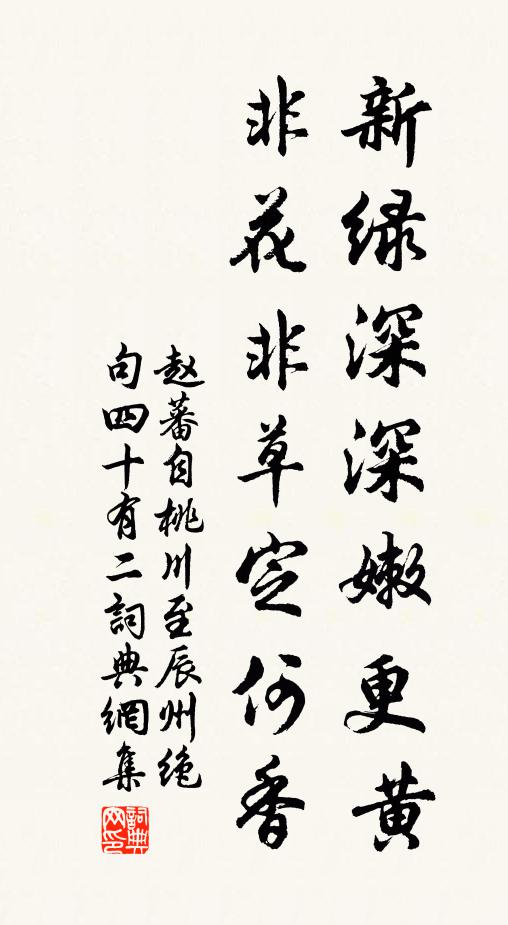 新绿深深嫩更黄
非花非草定何香
赵蕃自桃川至辰州绝
句四十有二詞典網集
詞典网印